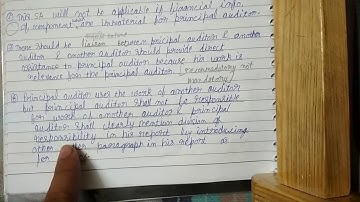 This SA will not be applicable if financial info.
of component are immaterial for principal auditor.
There should be liaison between pricipal auditor & another
auditor & another auditor should provide direct
assistance to principal auditor because his work is
relevance for the principal auditor. [recommendatory not
mandatory]
Principal auditor uses the work of another auditor
but principal auditor shall not be responsible
for work of another auditor & principal
auditor shall clearly mention division of
responsibility in his report by introducing
other paragraph in his report as
for